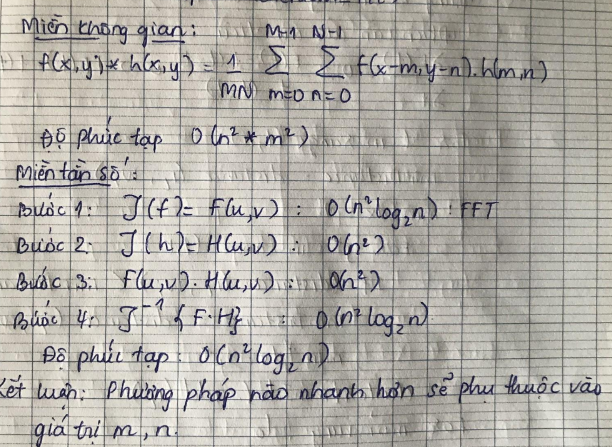 Miền không gian:
f(x,y) * h(x,y) = 1/MN M-1 Σ m=0 N-1 Σ n=0 f(x-m,y-n).h(m,n)
Độ phức tạp O(n² * m²)
Miền tần số:
Bước 1: ℑ(f) = F(u,v) : O(n² log₂ n) : FFT
Bước 2: ℑ(h) = H(u,v) : O(n²)
Bước 3: F(u,v).H(u,v) : O(n²)
Bước 4: ℑ⁻¹{F.H} : O(n² log₂ n)
Độ phức tạp : O(n² log₂ n)
Kết luận: Phương pháp nào nhanh hơn sẽ phụ thuộc vào
giá trị m, n.